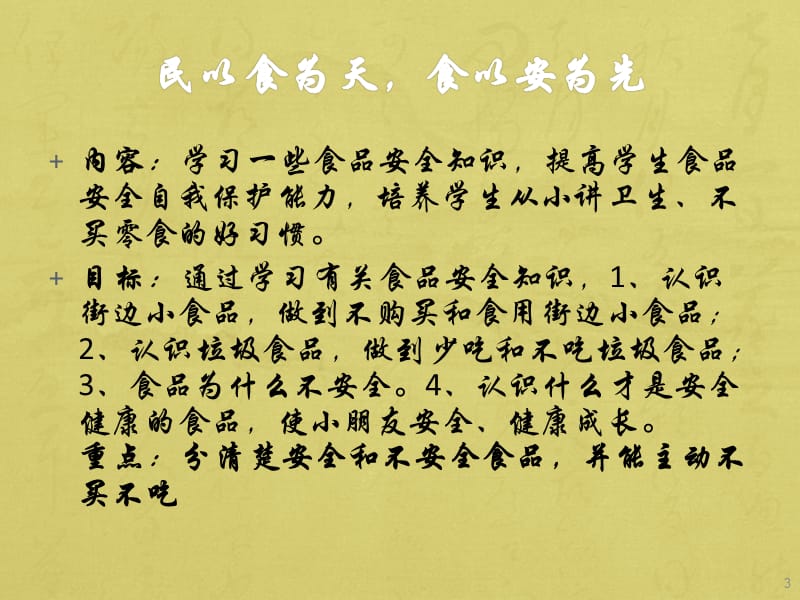 民以食为天，食以安为先
+ 内容：学习一些食品安全知识，提高学生食品
安全自我保护能力，培养学生从小讲卫生、不
买零食的好习惯。
+ 目标：通过学习有关食品安全知识，1、认识
街边小食品，做到不购买和食用街边小食品；
2、认识垃圾食品，做到少吃和不吃垃圾食品；
3、食品为什么不安全。4、认识什么才是安全
健康的食品，使小朋友安全、健康成长。
重点：分清楚安全和不安全食品，并能主动不
买不吃
3